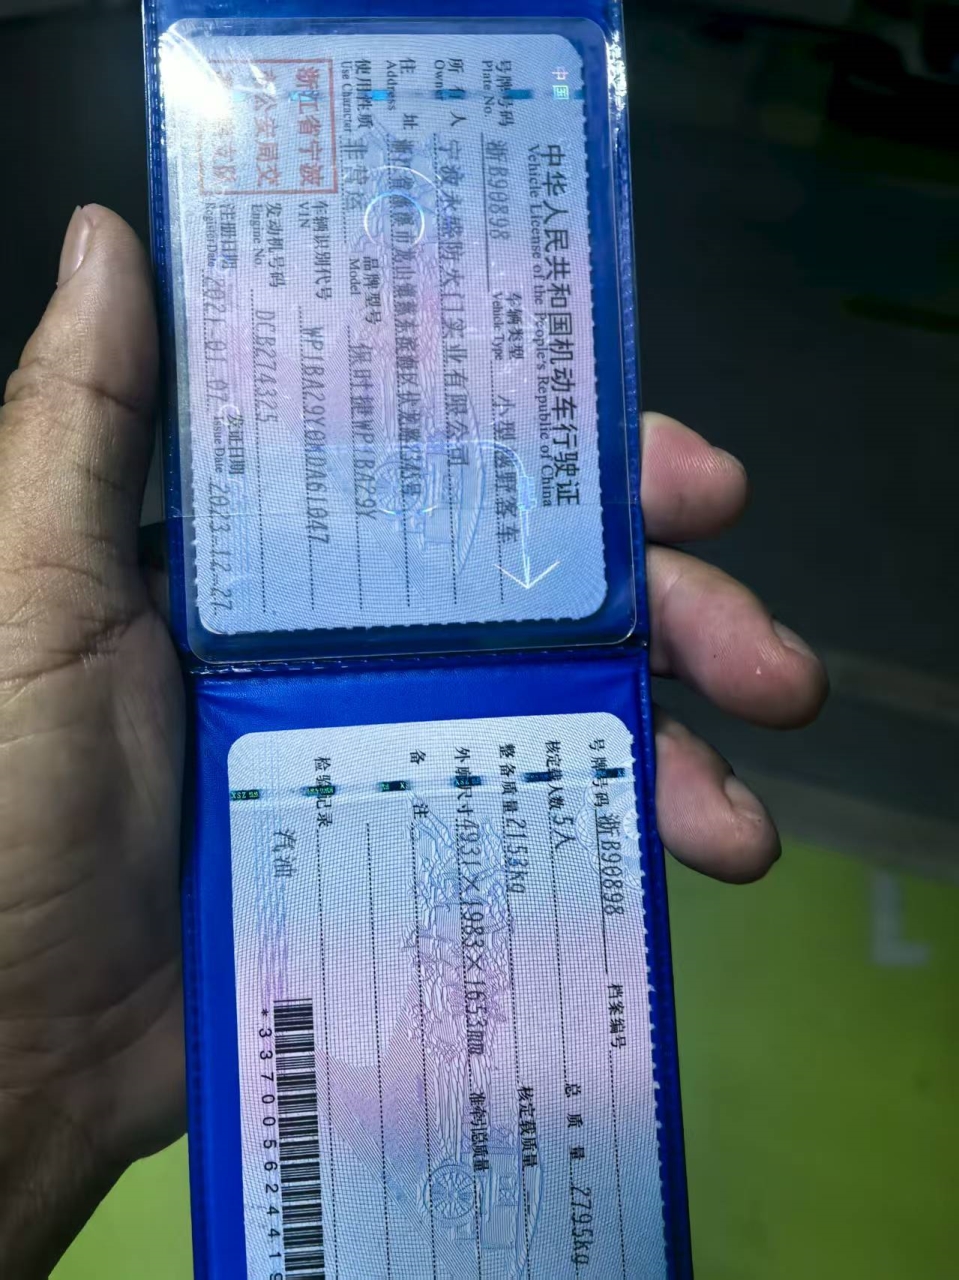 中国
中华人民共和国机动车行驶证
Vehicle License of the People's Republic of China
号牌号码 浙B90898 车辆类型 小型越野客车
Plate No. Vehicle Type
所有人 宁波永盛防火门实业有限公司
Owner
住址
Address
使用性质 非营运 品牌型号 保时捷WP1BA29Y
Use Character Model
浙江省宁波
市公安局交
车辆识别代号 WP1BA29Y0MDA61047
VIN
发动机号码 DCB274325
Engine No.
注册日期 2021-01-07 发证日期 2023-12-27
Register Date Issue Date
号牌号码 浙B90898 档案编号
核定载人数 5人 总质量 2795kg
整备质量 2153kg 核定载质量
外廓尺寸 4931×1983×1653mm 准牵引总质量
备注
检验记录
汽油
*33700562441